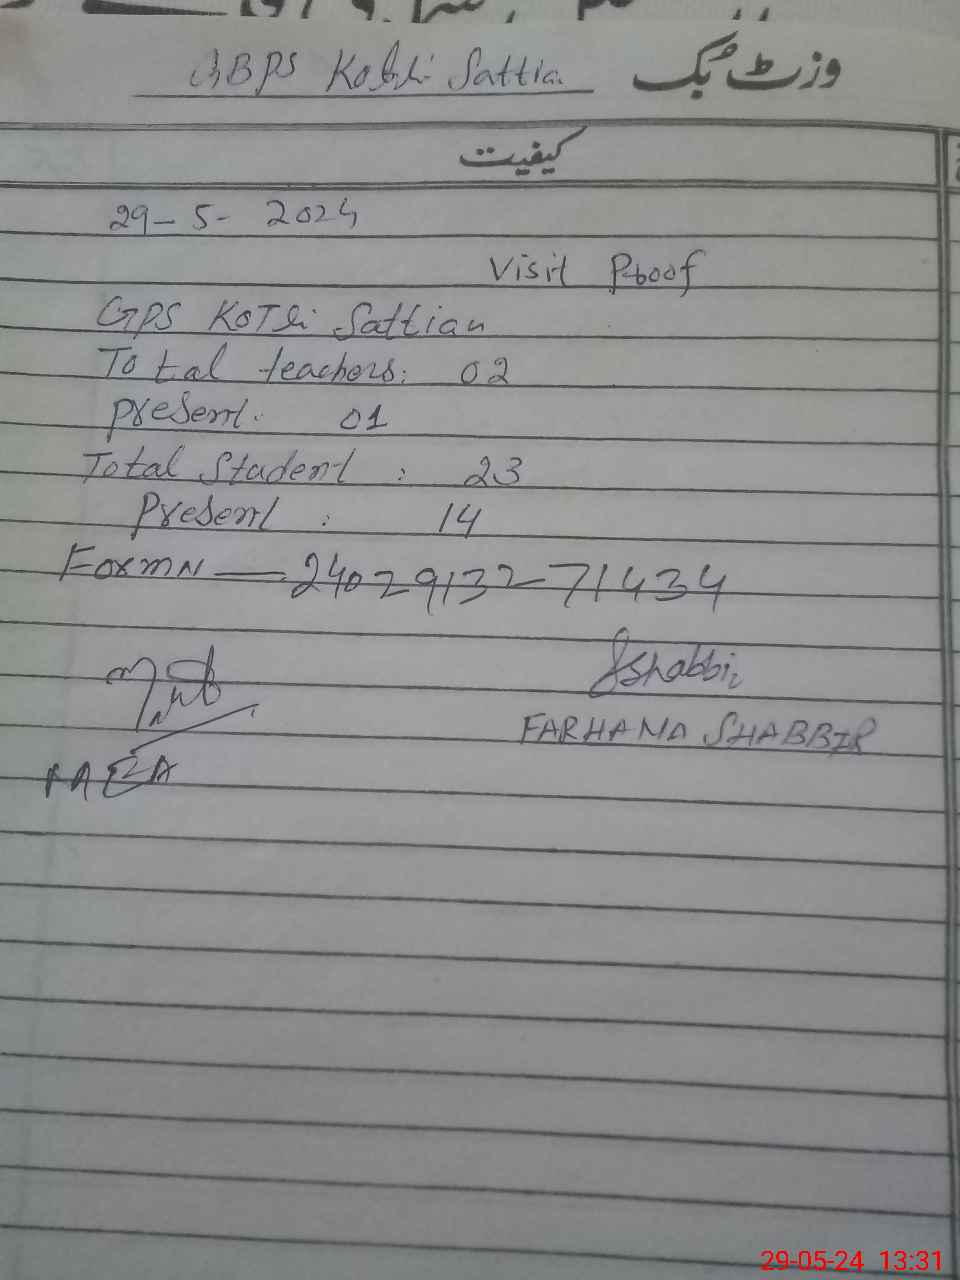 GBPS Kotli Sattian وزٹ بک
کیفیت
29-5-2024
Visit Proof
GPS KOTli Sattian
Total teachers: 02
Present: 01
Total Student : 23
Present : 14
FormN — 2402913271434
Shabbir
FARHANA SHABBIR
29-05-24 13:31